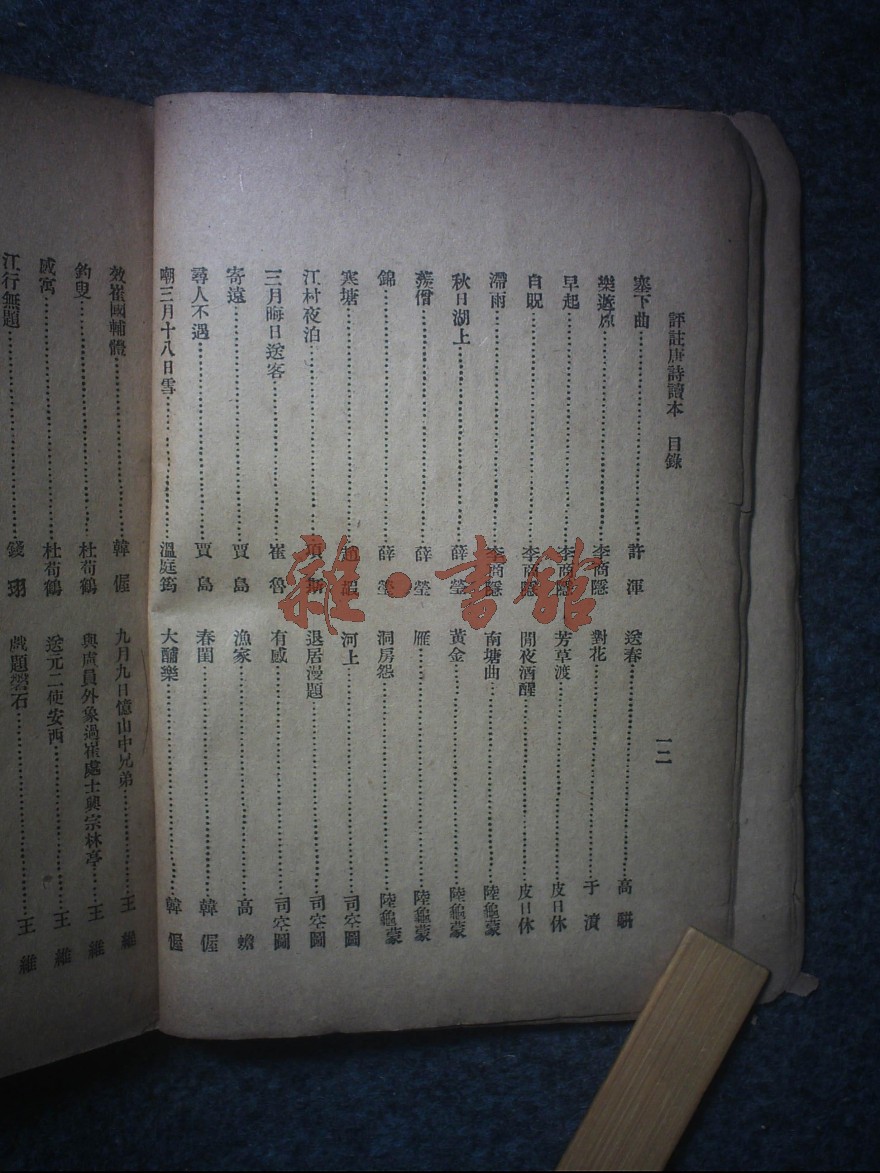 評註唐詩讀本 目錄 一二
塞下曲……許渾 送春……高駢
樂遊原……李商隱 對花……于濆
早起……李商隱 芳草渡……皮日休
自貺……李商隱 閒夜酒醒……皮日休
滯雨……李商隱 南塘曲……陸龜蒙
秋日湖上……薛瑩 黃金……陸龜蒙
僧……薛瑩 雁……陸龜蒙
錦……薛瑩 洞房怨……陸龜蒙
寒塘……趙嘏 河上……司空圖
江村夜泊……項斯 退居漫題……司空圖
三月晦日送客……崔魯 有感……司空圖
寄遠……賈島 漁家……高蟾
尋人不遇……賈島 春閨……韓偓
嘲三月十八日雪……溫庭筠 大酺樂……韓偓
效崔國輔體……韓偓 九月九日憶山中兄弟……王維
釣叟……杜荀鶴 與盧員外象過崔處士興宗林亭……王維
感寓……杜荀鶴 送元二使安西……王維
江行無題……錢珝 戲題磐石……王維
雜·書館